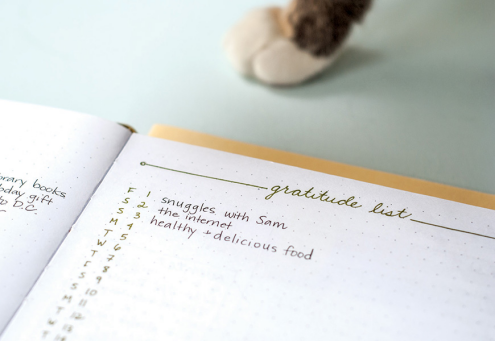 brary books
day gift
D.C.
gratitude list
F 1 snuggles with Sam
S 2 the internet
S 3 healthy + delicious food
M 4
T 5
W 6
T 7
F 8
S 9
S 10
M 11
T 12
W 13